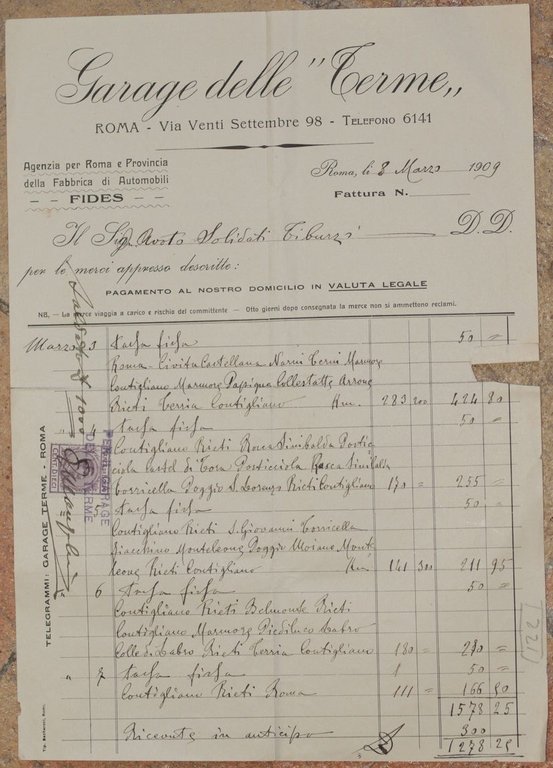 Garage delle "Terme„
ROMA - Via Venti Settembre 98 - TELEFONO 6141
Agenzia per Roma e Provincia
della Fabbrica di Automobili
- - FIDES - -
Roma, li 8 Marzo 1909
Fattura N.
Il Sig. Avoto Solidati Tiburzi D. D.
per le merci appresso descritte:
PAGAMENTO AL NOSTRO DOMICILIO IN VALUTA LEGALE
NB. — La merce viaggia a carico e rischio del committente — Otto giorni dopo consegnata la merce non si ammettono reclami.
Marzo 3 tassa fissa 50 =
Roma Civita Castellana Narni Terni Marmore
Contigliano Marmore Papigno Collestatte Arrone
Rieti Terria Contigliano Km. 283 200 424 80
4 tassa fissa 50 =
Contigliano Rieti Rocca Sinibalda Posticciola
Castel di Tora Posticciola Rocca Sinibalda
Torricella Poggio S. Lorenzo Rieti Contigliano 170 = 255 =
5 tassa fissa 50 =
Contigliano Rieti S. Giovanni Torricella
Monteleone Poggio Moiano Monte
leone Rieti Contigliano Km 141 300 211 95
6 tassa fissa 50 =
Contigliano Rieti Belmonte Rieti
Contigliano Marmore Piediluco Labro
Colle di Labro Rieti Terria Contigliano 180 = 270 =
" 7 tassa fissa 50 =
Contigliano Rieti Roma 111 = 166 50
1578 25
Ricevute in anticipo 300
1278 25
TELEGRAMMI: GARAGE TERME ROMA
PEL GARAGE
DELLE TERME
CENT. DIECI
1000
221
Tip. Roma.